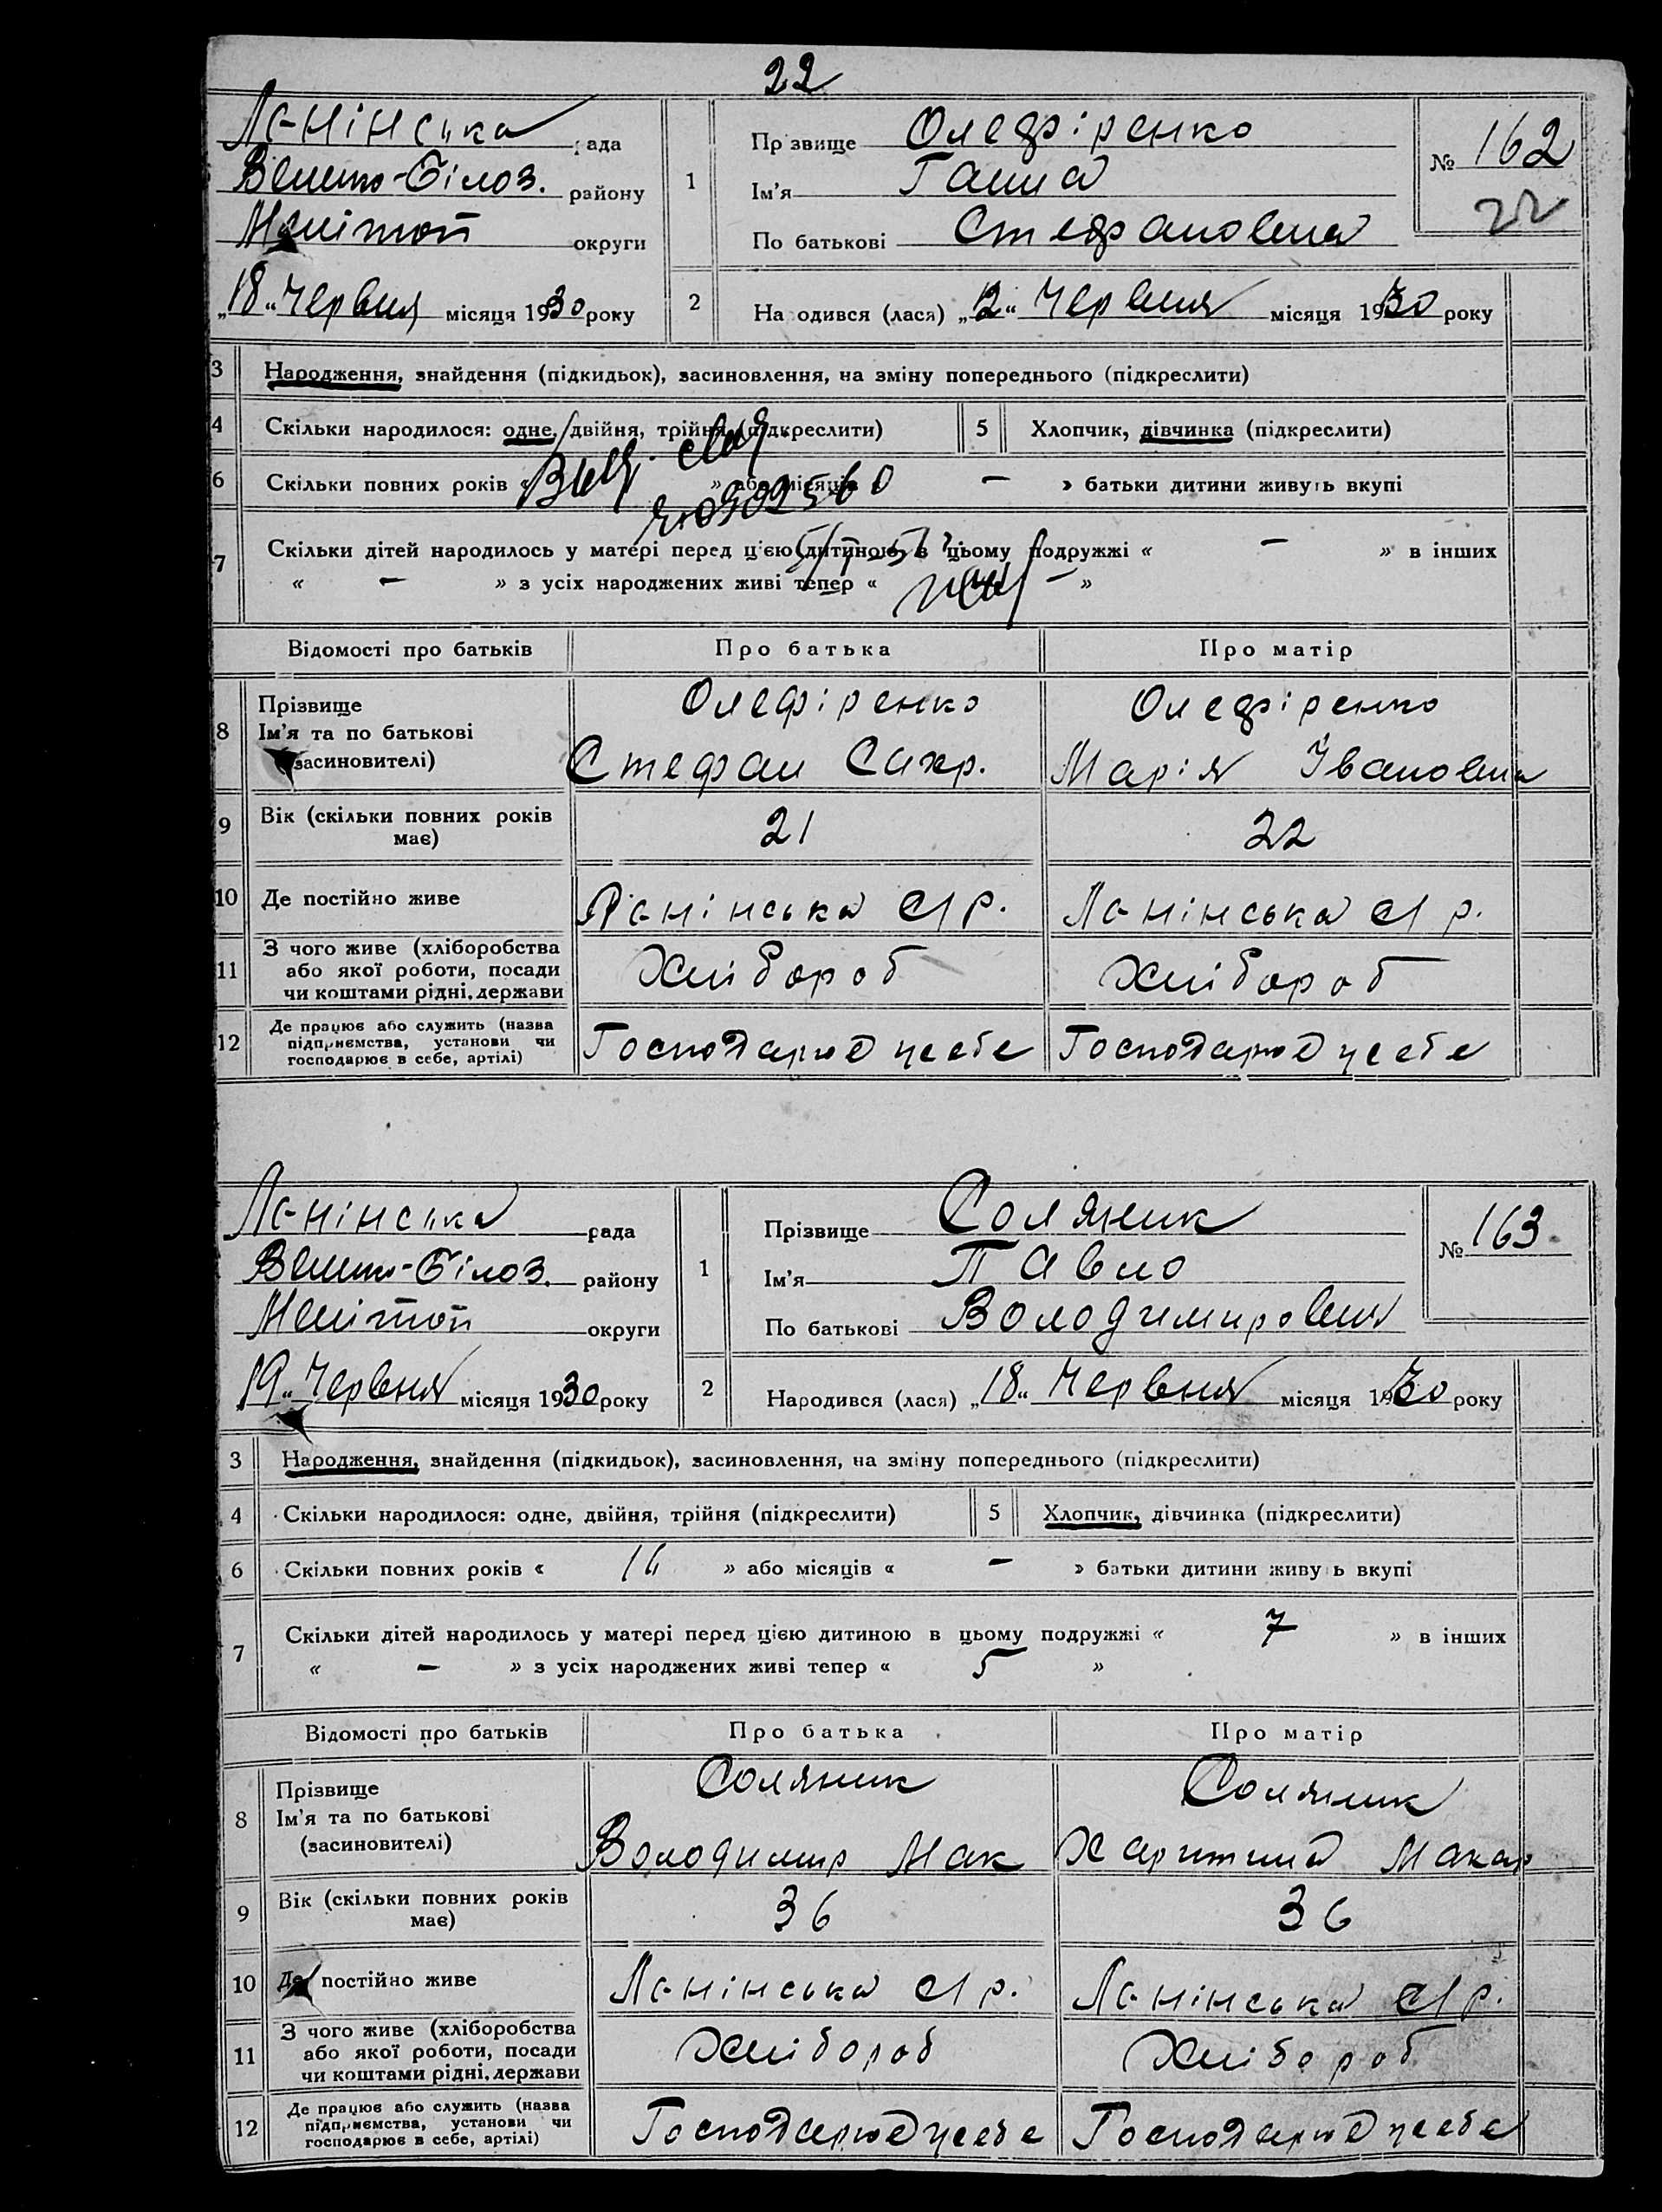 22
Ленінська рада
Велико-Білоз. району
Мелітоп округи
„18“ Червня місяця 1930 року
1
Пр звище Олефіренко
Ім’я Ганна
По батькові Стефановна
№ 162
22
2
На одився (лася) „12“ Червня місяця 1930 року
3 Народження, знайдення (підкидьок), засиновлення, на зміну попереднього (підкреслити)
4 Скільки народилося: одне, двійня, трійня (підкреслити) 5 Хлопчик, дівчинка (підкреслити)
6 Скільки повних років « » або місяців « – » батьки дитини живуть вкупі
7 Скільки дітей народилось у матері перед цією дитиною в цьому подружжі « – » в інших
« – » з усіх народжених живі тепер « – »
Відомості про батьків Про батька Про матір
8 Прізвище Ім’я та по батькові (засиновителі)
Олефіренко Олефіренко
Стефан Сахр. Марія Івановна
9 Вік (скільки повних років має) 21 22
10 Де постійно живе Ленінська с/р. Ленінська с/р.
11 З чого живе (хліборобства або якої роботи, посади чи коштами рідні, держави Хлібороб Хлібороб
12 Де працює або служить (назва підприємства, установи чи господарює в себе, артілі) Господарює у себе Господарює у себе
Ленінська рада
Велико-Білоз. району
Мелітоп округи
19“ Червня місяця 1930 року
1
Прізвище Соляник
Ім’я Павло
По батькові Володимирович
№ 163.
2
Народився (лася) „18“ Червня місяця 1930 року
3 Народження, знайдення (підкидьок), засиновлення, на зміну попереднього (підкреслити)
4 Скільки народилося: одне, двійня, трійня (підкреслити) 5 Хлопчик, дівчинка (підкреслити)
6 Скільки повних років « » або місяців « – » батьки дитини живу ь вкупі
7 Скільки дітей народилось у матері перед цією дитиною в цьому подружжі « 7 » в інших
« – » з усіх народжених живі тепер « 5 »
Відомості про батьків Про батька Про матір
8 Прізвище Ім’я та по батькові (засиновителі)
Соляник Соляник
Володимир Мак Макар
9 Вік (скільки повних років має) 36 36
10 Де постійно живе Ленінська с/р. Ленінська с/р.
11 З чого живе (хліборобства або якої роботи, посади чи коштами рідні, держави Хлібороб Хлібороб
12 Де працює або служить (назва підприємства, установи чи господарює в себе, артілі) Господарює у себе Господарює у себе